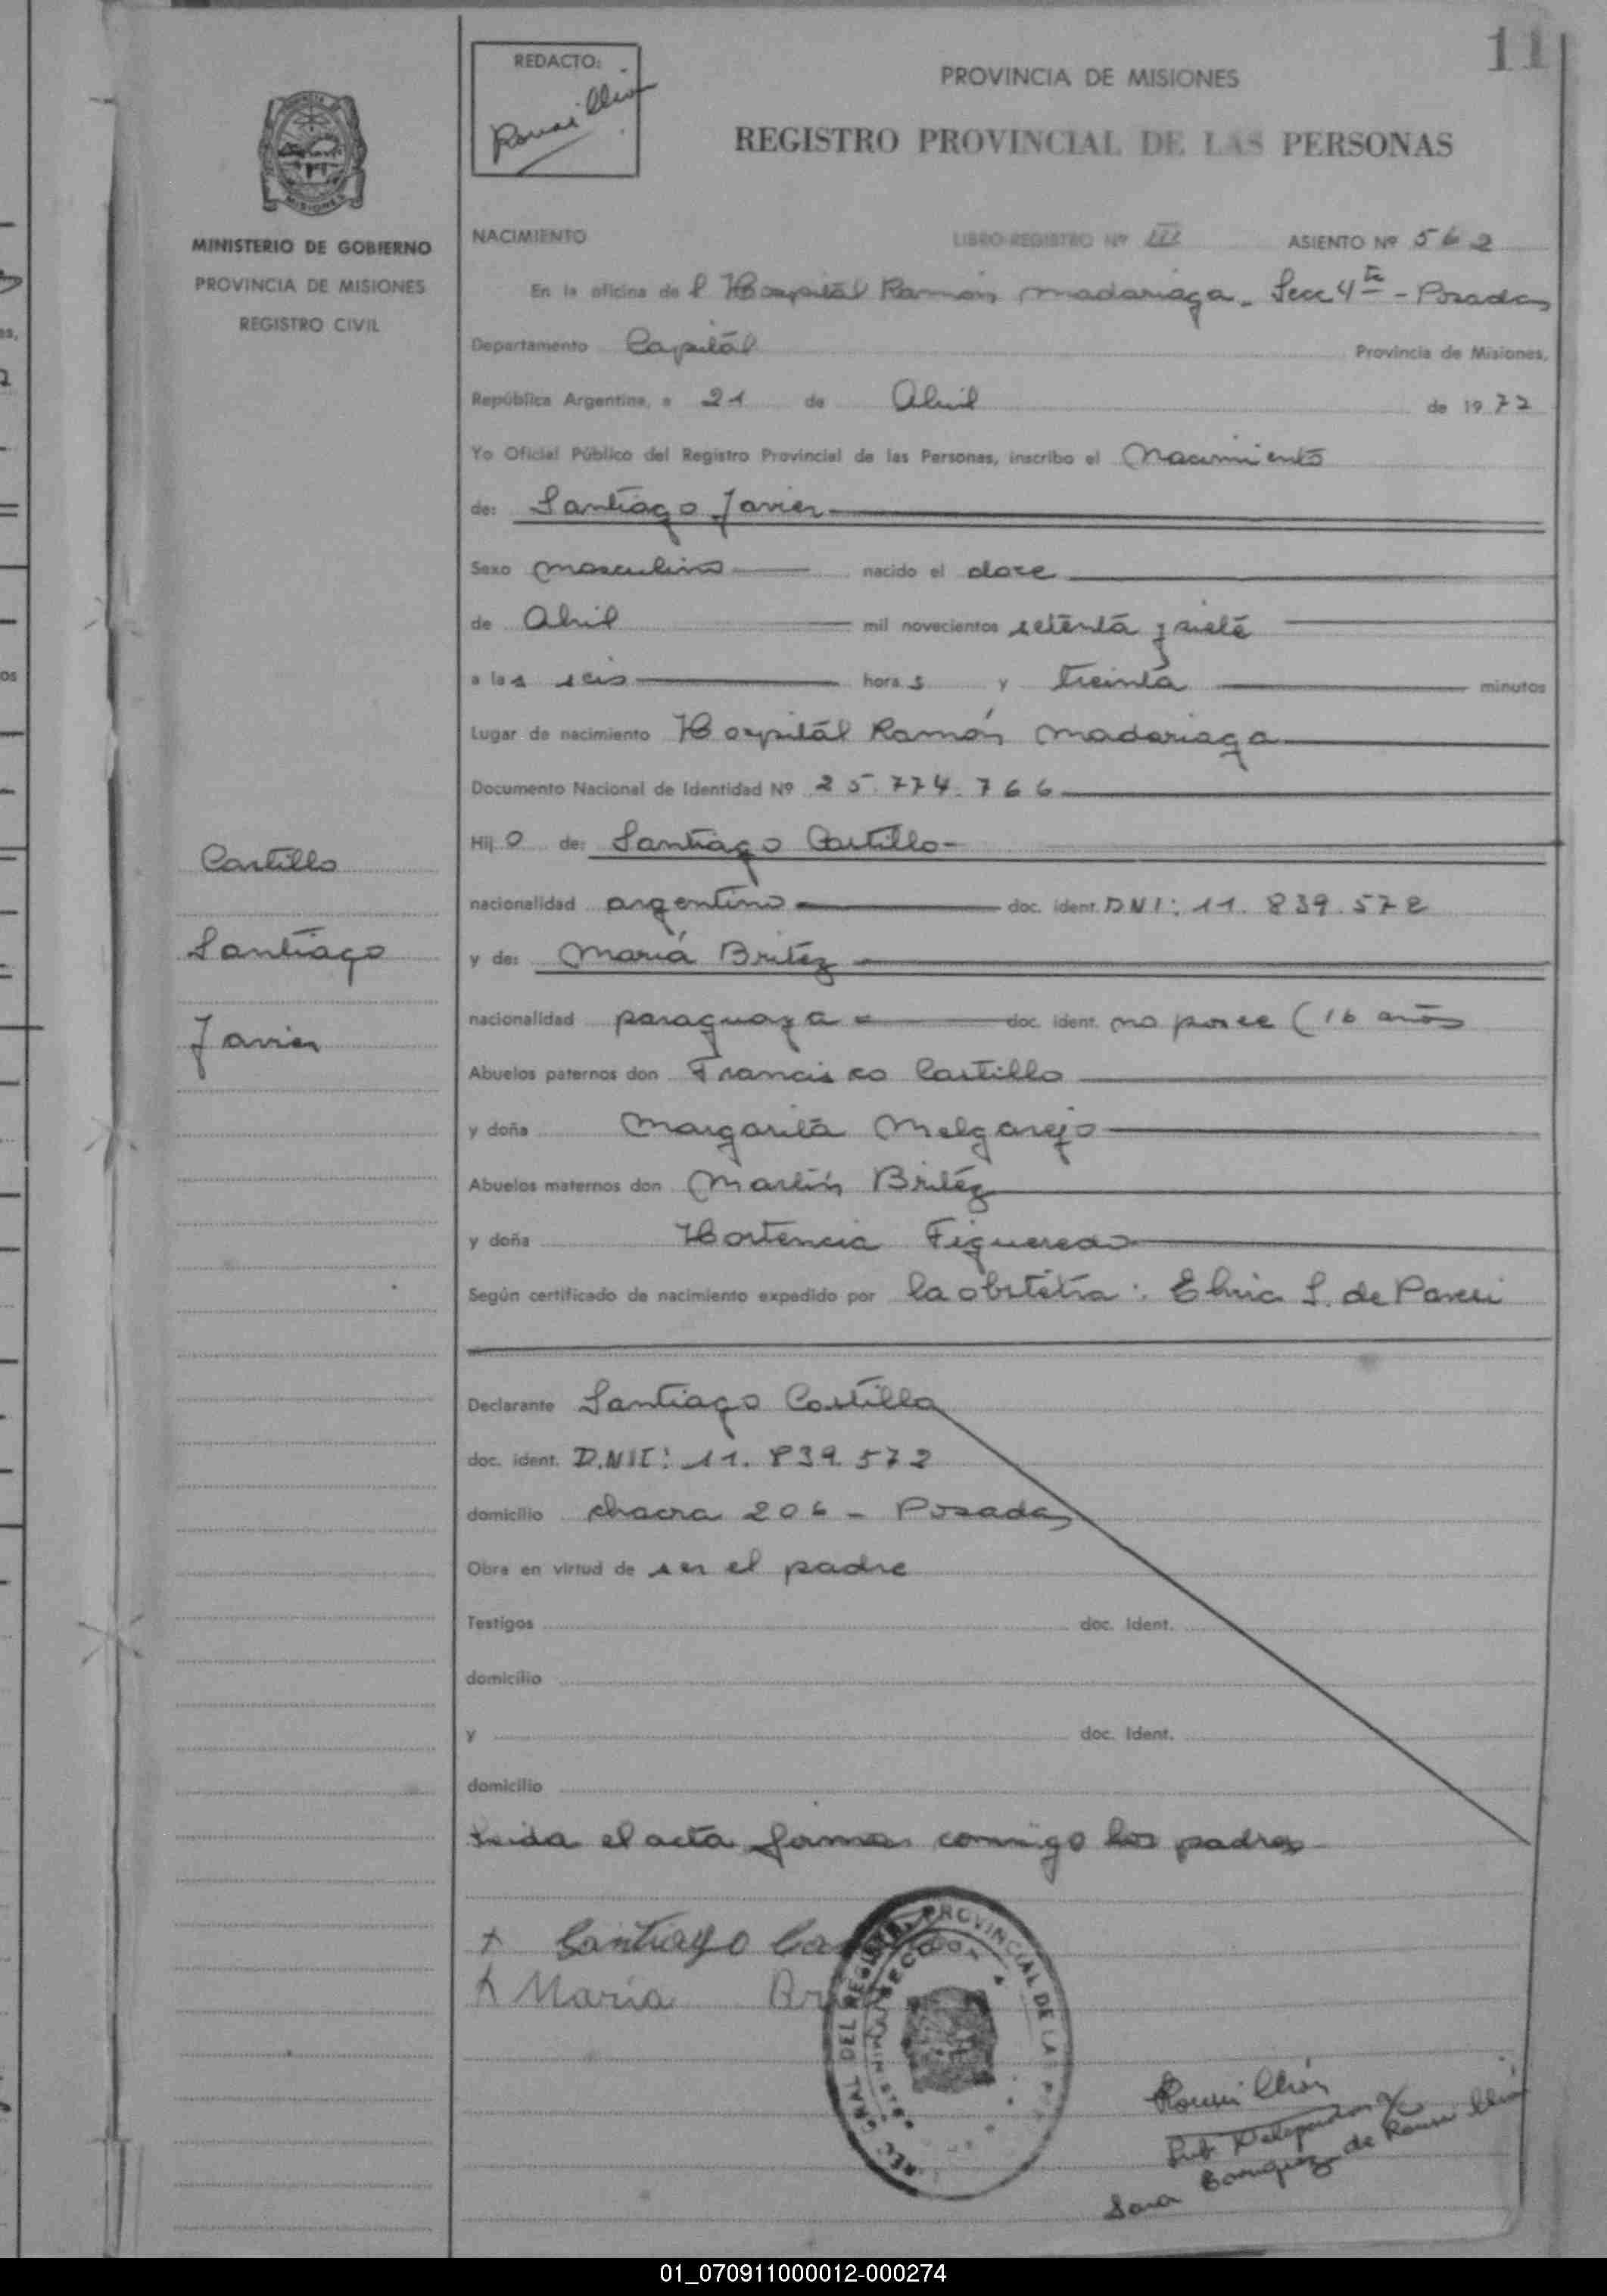 11
REDACTO:
PROVINCIA DE MISIONES
REGISTRO PROVINCIAL DE LAS PERSONAS
MINISTERIO DE GOBIERNO
PROVINCIA DE MISIONES
REGISTRO CIVIL
NACIMIENTO LIBRO-REGISTRO Nº III ASIENTO Nº 562
En la oficina del Hospital Ramón Madariaga - Secc 4ta - Posadas
Departamento Capital Provincia de Misiones,
República Argentina, a 21 de Abril de 1977
Yo Oficial Público del Registro Provincial de las Personas, inscribo el Nacimiento
de: Santiago Javier
Sexo masculino nacido el doce
de Abril mil novecientos setenta y siete
a las seis horas y treinta minutos
Lugar de nacimiento Hospital Ramón Madariaga
Documento Nacional de Identidad Nº 25.774.766
Hijo de: Santiago Castillo
nacionalidad argentino doc. ident. DNI: 11.839.572
y de: María Britéz
nacionalidad paraguaya doc. ident. no posee (16 años
Abuelos paternos don Francisco Castillo
y doña Margarita Melgarejo
Abuelos maternos don Martín Britéz
y doña Hortencia Figueredo
Según certificado de nacimiento expedido por la obstetra: Elvia S. de
Castillo
Santiago
Javier
Declarante Santiago Castillo
doc. ident. D.N.I: 11.839.572
domicilio chacra 206 - Posadas
Obra en virtud de ser el padre
Testigos doc. ident.
domicilio
y doc. ident.
domicilio
Leida el acta firman conmigo los padres
Santiago Ca
María Bri
DEL REGISTRO PROVINCIAL DE LA
Sara de
01_070911000012-000274